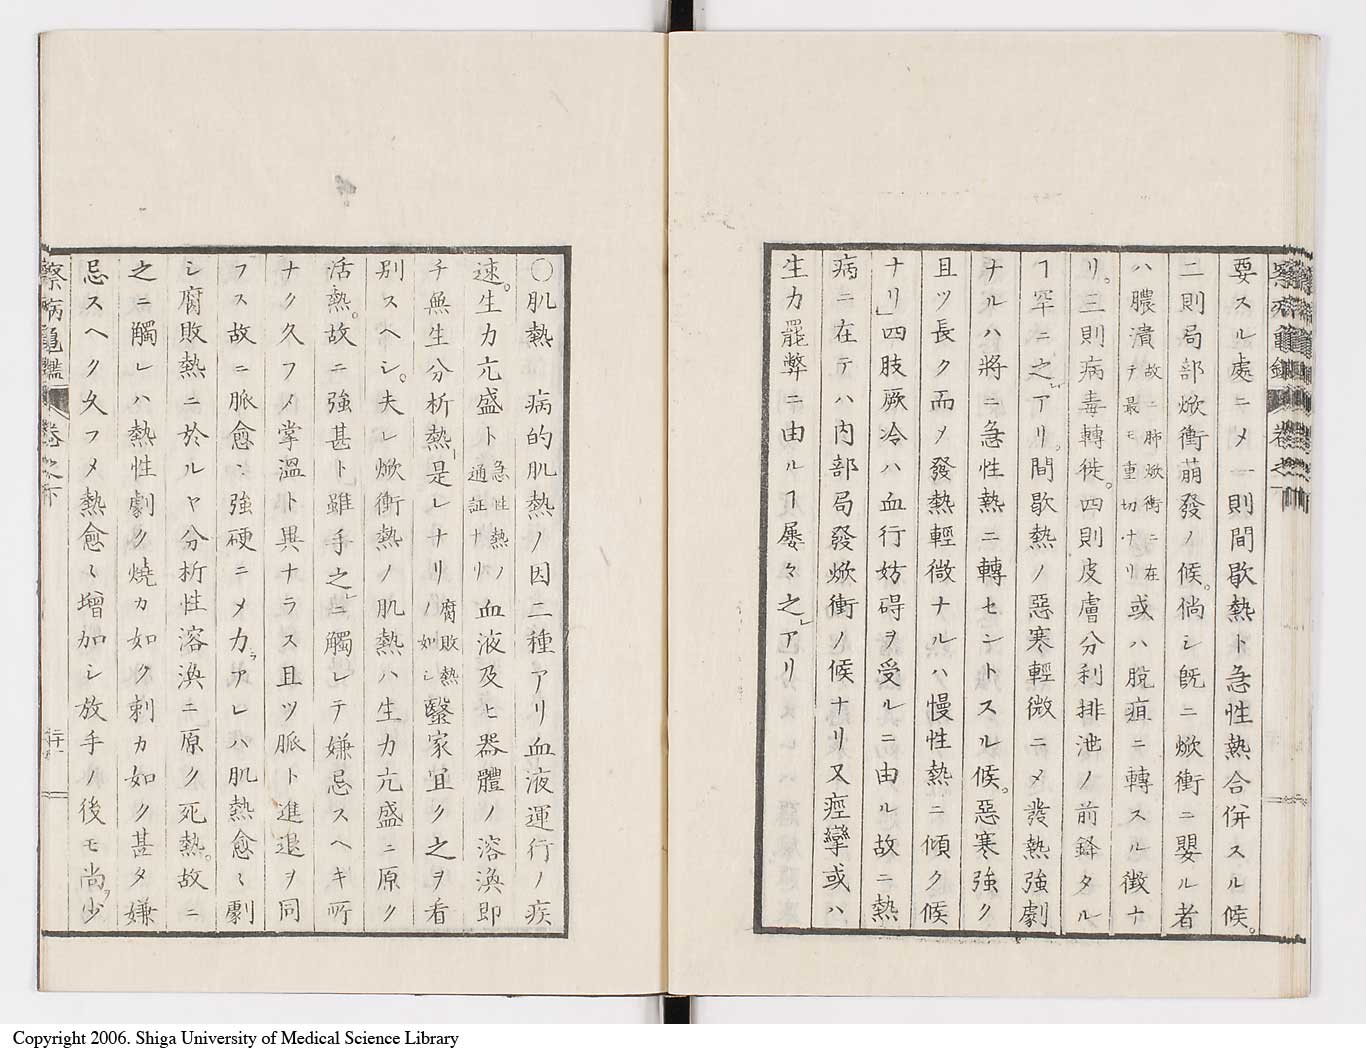 要スル處ニメ一則間歇熱ト急性熱合併スル候。
二則局部焮衝萠發ノ候。倘シ既ニ焮衝ニ嬰ル者
ハ膿潰故ニ肺焮衝ニ在テ最モ重切ナリ或ハ脫疽ニ轉スル徴ナ
リ。三則病毒轉徙。四則皮膚分利排泄ノ前鋒タル
ヿ罕ニ之レアリ。間歇熱ノ惡寒輕微ニメ發熱強劇
ナルハ將ニ急性熱ニ轉セントスル候。惡寒強ク
且ツ長ク而メ發熱輕微ナルハ慢性熱ニ傾ク候
ナリ」四肢厥冷ハ血行妨碍ヲ受ルニ由ル故ニ熱
病ニ在テハ內部局發焮衝ノ候ナリ又痙攣或ハ
生力罷弊ニ由ルヿ屡々之レアリ
〇肌熱 病的肌熱ノ因二種アリ血液運行ノ疾
速。生力亢盛ト急性熱ノ通証ナリ血液及ヒ器體ノ溶渙即
チ無生分析熱是レナリ腐敗熱ノ如シ毉家宜ク之ヲ看
別スヘシ。夫レ焮衝熱ノ肌熱ハ生力亢盛ニ原ク
活熱。故ニ強甚ト雖手之レニ觸レテ嫌忌スヘキ所
ナク久フメ掌溫ト異ナラス且ツ脈ト進退ヲ同
フス故ニ脈愈〻強硬ニメ力ラアレハ肌熱愈〻劇
シ腐敗熱ニ於ルヤ分析性溶渙ニ原ク死熱。故ニ
之ニ觸レハ熱性劇ク燒カ如ク刺カ如ク甚タ嫌
忌スヘク久フメ熱愈〻增加シ放手ノ後モ尚ヲ少
察病龜鑑 卷之下